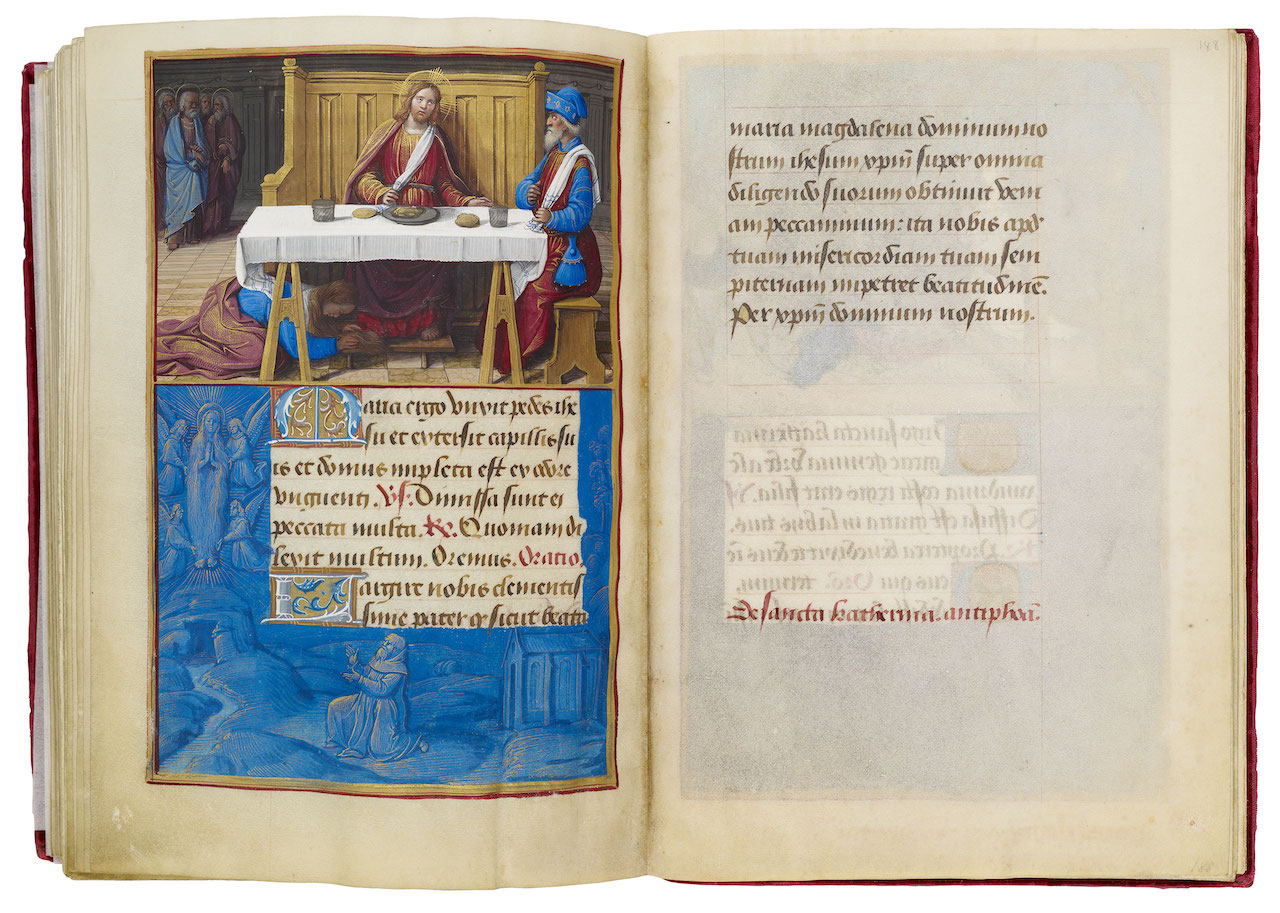 Maria ergo unxit pedes ihe
su et extersit capillis su
is et domus impleta est ex odore
unguenti. Vs. Dimissa sunt ei
peccata multa. Rx. Quoniam di
lexit multum. Oremus. Oratio.
Largire nobis clementis
sime pater qꝫ sicut beata
188
maria magdalena dominum no
strum ihesum xpm̄ super omnia
diligendo suorum obtinuit veni
am peccaminum: ita nobis apd
tuam misericordiam tuam sem
piternam impetret beatitudinē.
Per xpm̄ dominum nostrum.
De sancta katherina. antiphōa.